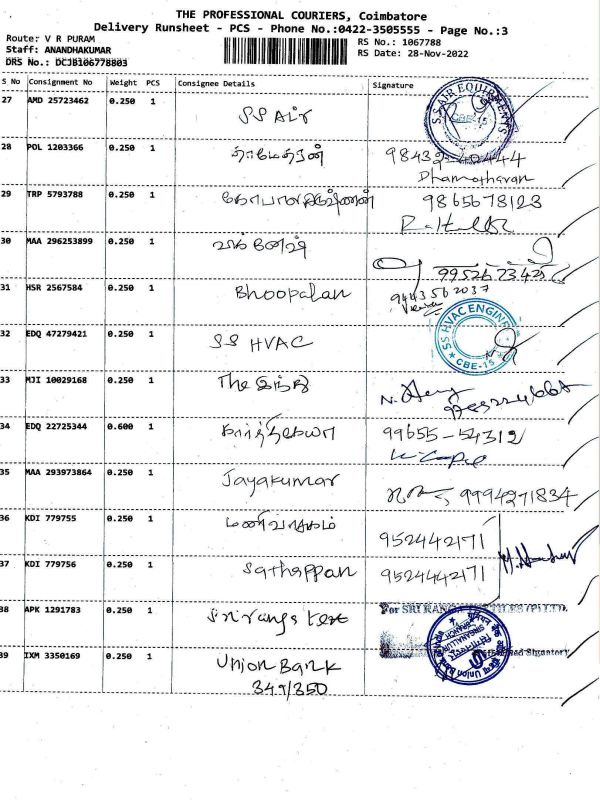 THE PROFESSIONAL COURIERS, Coimbatore
Delivery Runsheet - PCS - Phone No.:0422-3505555 - Page No.:3
Route: V R PURAM
RS No.: 1067788
Staff: ANANDHAKUMAR
RS Date: 28-Nov-2022
DRS No.: DCJB10677B8803
S No Consignment No Weight PCS Consignee Details Signature
27 AMD 25723462 0.250 1 SS Air SS AIR EQUIPMENTS CBE-15
28 POL 1203366 0.250 1 தாமோதரன் 98432-40444
Dhamotharan
29 TRP 5793788 0.250 1 கோபாலகிருஷ்ணன் 9865678123
30 MAA 296253899 0.250 1
9952673425
31 HSR 2567584 0.250 1 Bhoopalan 9443562037
32 EDQ 47279421 0.250 1 SS HVAC SS HVAC ENGINE CBE-15
33 MJI 10029168 0.250 1 The இந்து
34 EDQ 22725344 0.600 1 கார்த்திகேயா 99655-54312
35 MAA 293973864 0.250 1 Jayakumar 9994271834
36 KDI 779755 0.250 1 மணிவாசகம் 952442171
37 KDI 779756 0.250 1 Sathappan 9524442171
38 APK 1291783 0.250 1 Sri ranga tex For SRI RANGA TEXTILES (P) LTD.
Authorised Signatory
39 IXM 3350169 0.250 1 Union Bank
349/350